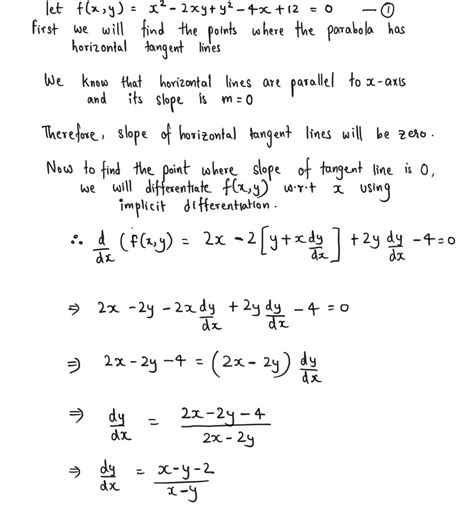 let f(x,y) = x² - 2xy + y² - 4x + 12 = 0 — ①
First we will find the points where the parabola has
horizontal tangent lines
We know that horizontal lines are parallel to x-axis
and its slope is m = 0
Therefore, slope of horizontal tangent lines will be zero.
Now to find the point where slope of tangent line is 0,
we will differentiate f(x,y) w.r.t x using
implicit differentiation.
∴ d/dx (f(x,y) = 2x - 2[y + x dy/dx] + 2y dy/dx - 4 = 0
⇒ 2x - 2y - 2x dy/dx + 2y dy/dx - 4 = 0
⇒ 2x - 2y - 4 = (2x - 2y) dy/dx
⇒ dy/dx = 2x - 2y - 4 / 2x - 2y
⇒ dy/dx = x - y - 2 / x - y